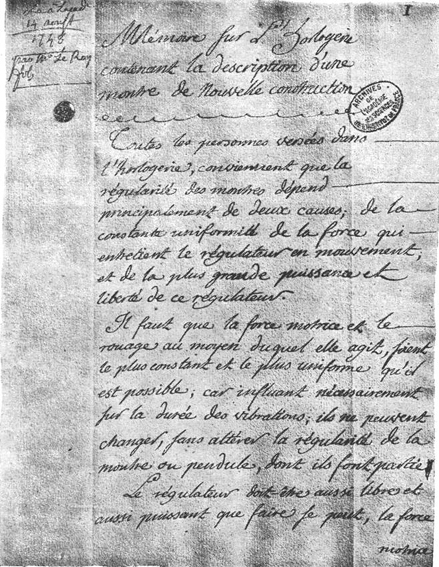 1
14 aoust
1748
par Mr Le Roy
fils
Mémoire sur L'horlogerie
contenant la description d'une
montre de Nouvelle construction
ARCHIVES DE L'ACADÉMIE DES SCIENCES INSTITUT DE FRANCE
Toutes les personnes versées dans
l'horlogerie, conviennent que la
régularité des montres dépend
principalement de deux causes; de la
constante uniformité de la force qui
entretient le régulateur en mouvement,
et de la plus grande puissance et
liberté de ce régulateur.
Il faut que la force motrice et le
rouage au moyen duquel elle agit, soient
le plus constant et le plus uniforme qu'il
est possible; car influant nécessairement
sur la durée des vibrations; ils ne peuvent
changer, sans altérer la régularité de la
montre ou pendule, dont ils font partie
Le régulateur doit être aussi libre et
aussi puissant que faire se peut, la force
motrice